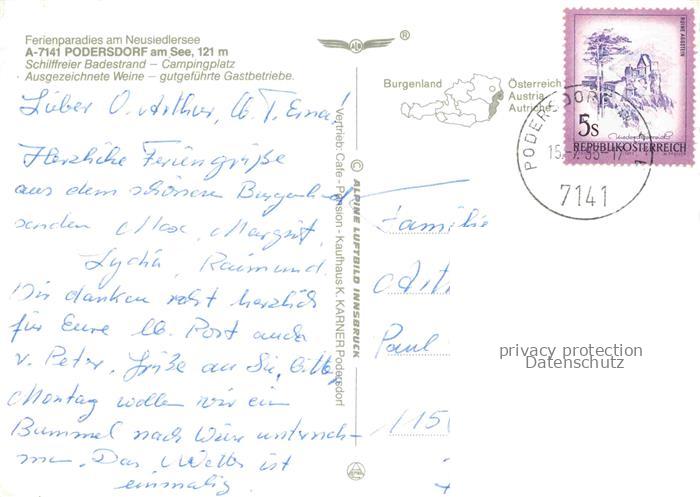 Ferienparadies am Neusiedlersee
A-7141 PODERSDORF am See, 121 m
Schilffreier Badestrand – Campingplatz
Ausgezeichnete Weine – gutgeführte Gastbetriebe.
®
Burgenland
Österreich
Austria
Autriche
RUINE AGGSTEIN
5s
Niederösterreich
REPUBLIK ÖSTERREICH
PODERSDORF
7141
Lieber O. Arthur, lb. T. Erna!
Herzliche Feriengrüße
aus dem schönen Burgenland
senden Max, Margrit,
Lydia, Raimund.
Wir danken recht herzlich
für Eure lb. Post auch
v. Peter. Grüße an Sie, bitte,
Montag wollen wir ein
Bummel nach Wien unterneh-
men. Das Wetter ist
einmalig.
Vertrieb: Cafe-Pension-Kaufhaus K. KARNER Podersdorf
© ALPINE LUFTBILD INNSBRUCK
Familie
Art
Paul
115
privacy protection
Datenschutz